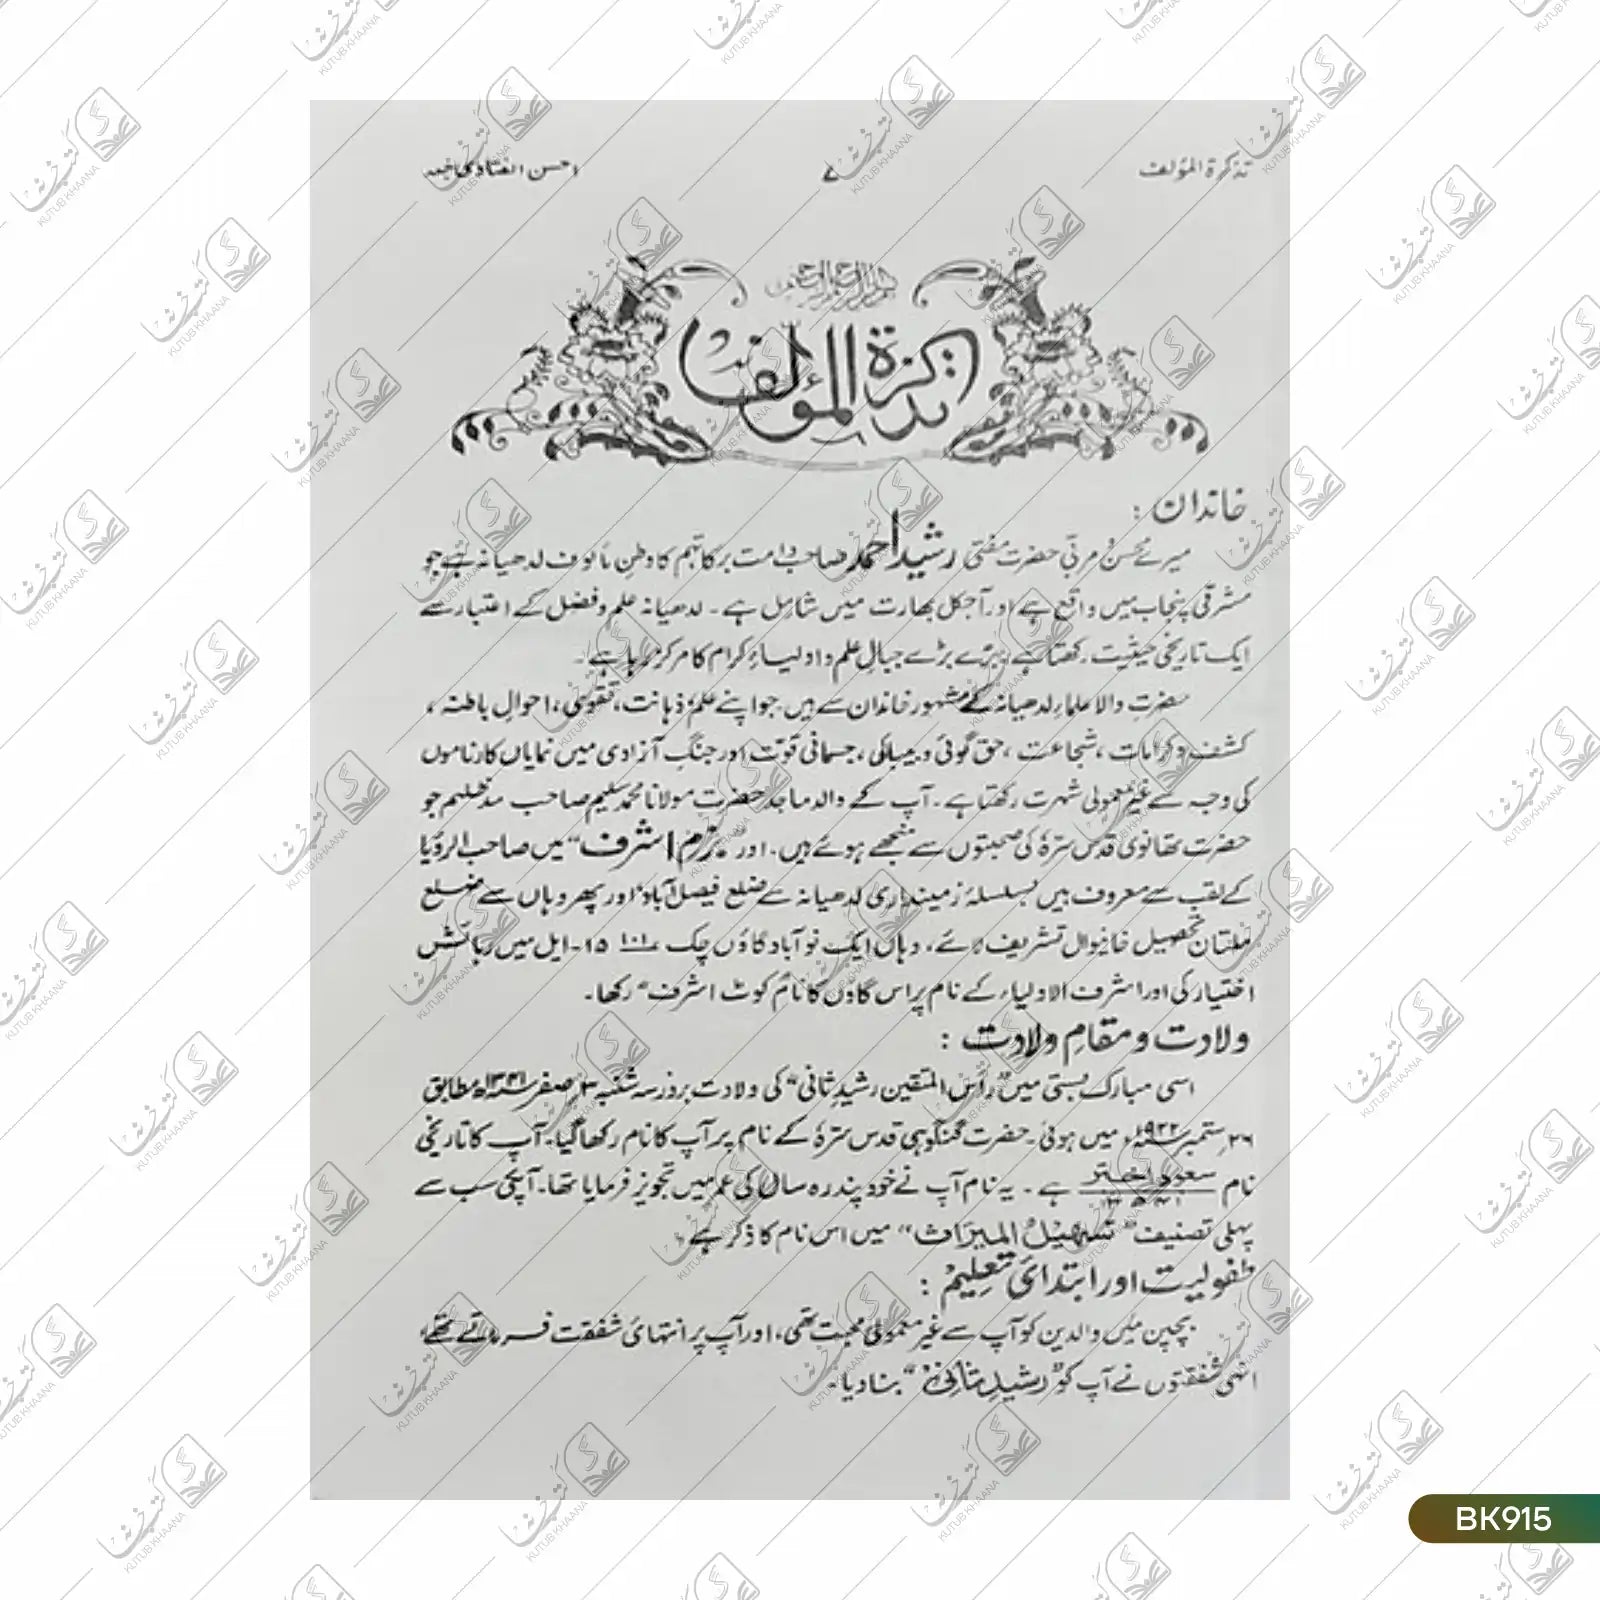 تذکرۃ المؤلف
۷
احسن الفتاوی جلد
بسم اللہ الرحمن الرحیم
تذکرۃ المؤلف
خاندان :
میرے محسن و مربی حضرت مفتی رشید احمد صاحب دامت برکاتہم کا وطن مألوف لدھیانہ ہے جو
مشرقی پنجاب میں واقع ہے اور آجکل بھارت میں شامل ہے۔ لدھیانہ علم و فضل کے اعتبار سے
ایک تاریخی حیثیت رکھتا ہے بڑے بڑے جبالِ علم و اولیاءِ کرام کا مرکز رہا ہے۔
حضرتِ والا علماءِ لدھیانہ کے مشہور خاندان سے ہیں جو اپنے علم و ذہانت، تقوٰی، احوالِ باطنہ،
کشف و کرامات، شجاعت، حق گوئی و بیباکی، جسمانی قوّت اور جنگِ آزادی میں نمایاں کارناموں
کی وجہ سے غیر معمولی شہرت رکھتا ہے۔ آپ کے والد ماجد حضرت مولانا محمد سلیم صاحب مدظلہم جو
حضرت تھانوی قدس سرّہٗ کی صحبتوں سے منجھے ہوئے ہیں۔ اور "بزم اشرف" میں صاحب الرؤیا
کے لقب سے معروف ہیں بسلسلۂ زمینداری لدھیانہ سے ضلع فیصل آباد اور پھر وہاں سے ضلع
ملتان تحصیل خانیوال تشریف لائے، وہاں ایک نوآباد گاؤں چک ۱۰۱ ۱۵-ایل میں رہائش
اختیار کی اور اشرف الاولیاء کے نام پر اس گاؤں کا نام "کوٹ اشرف" رکھا۔
ولادت و مقامِ ولادت :
اسی مبارک بستی میں "رأس المتقین رشیدِ ثانی" کی ولادت بروز سہ شنبہ ۳ صفر سنہ ۱۳۴۱ھ مطابق
۲۶ ستمبر سنہ ۱۹۲۲ء میں ہوئی۔ حضرت گنگوہی قدس سرّہٗ کے نام پر آپ کا نام رکھا گیا۔ آپ کا تاریخی
نام سعود اختر ۱۳۴۱ ہے۔ یہ نام آپ نے خود پندرہ سال کی عمر میں تجویز فرمایا تھا۔ آپکی سب سے
پہلی تصنیف "تسہیل المیراث" میں اس نام کا ذکر ہے۔
طفولیت اور ابتدائی تعلیم :
بچپن میں والدین کو آپ سے غیر معمولی محبت تھی، اور آپ پر انتہائی شفقت فرماتے تھے،
انہی شفقتوں نے آپ کو "رشیدِ ثانی" بنا دیا۔
BK915
کتب خانہ
KUTUB KHAANA